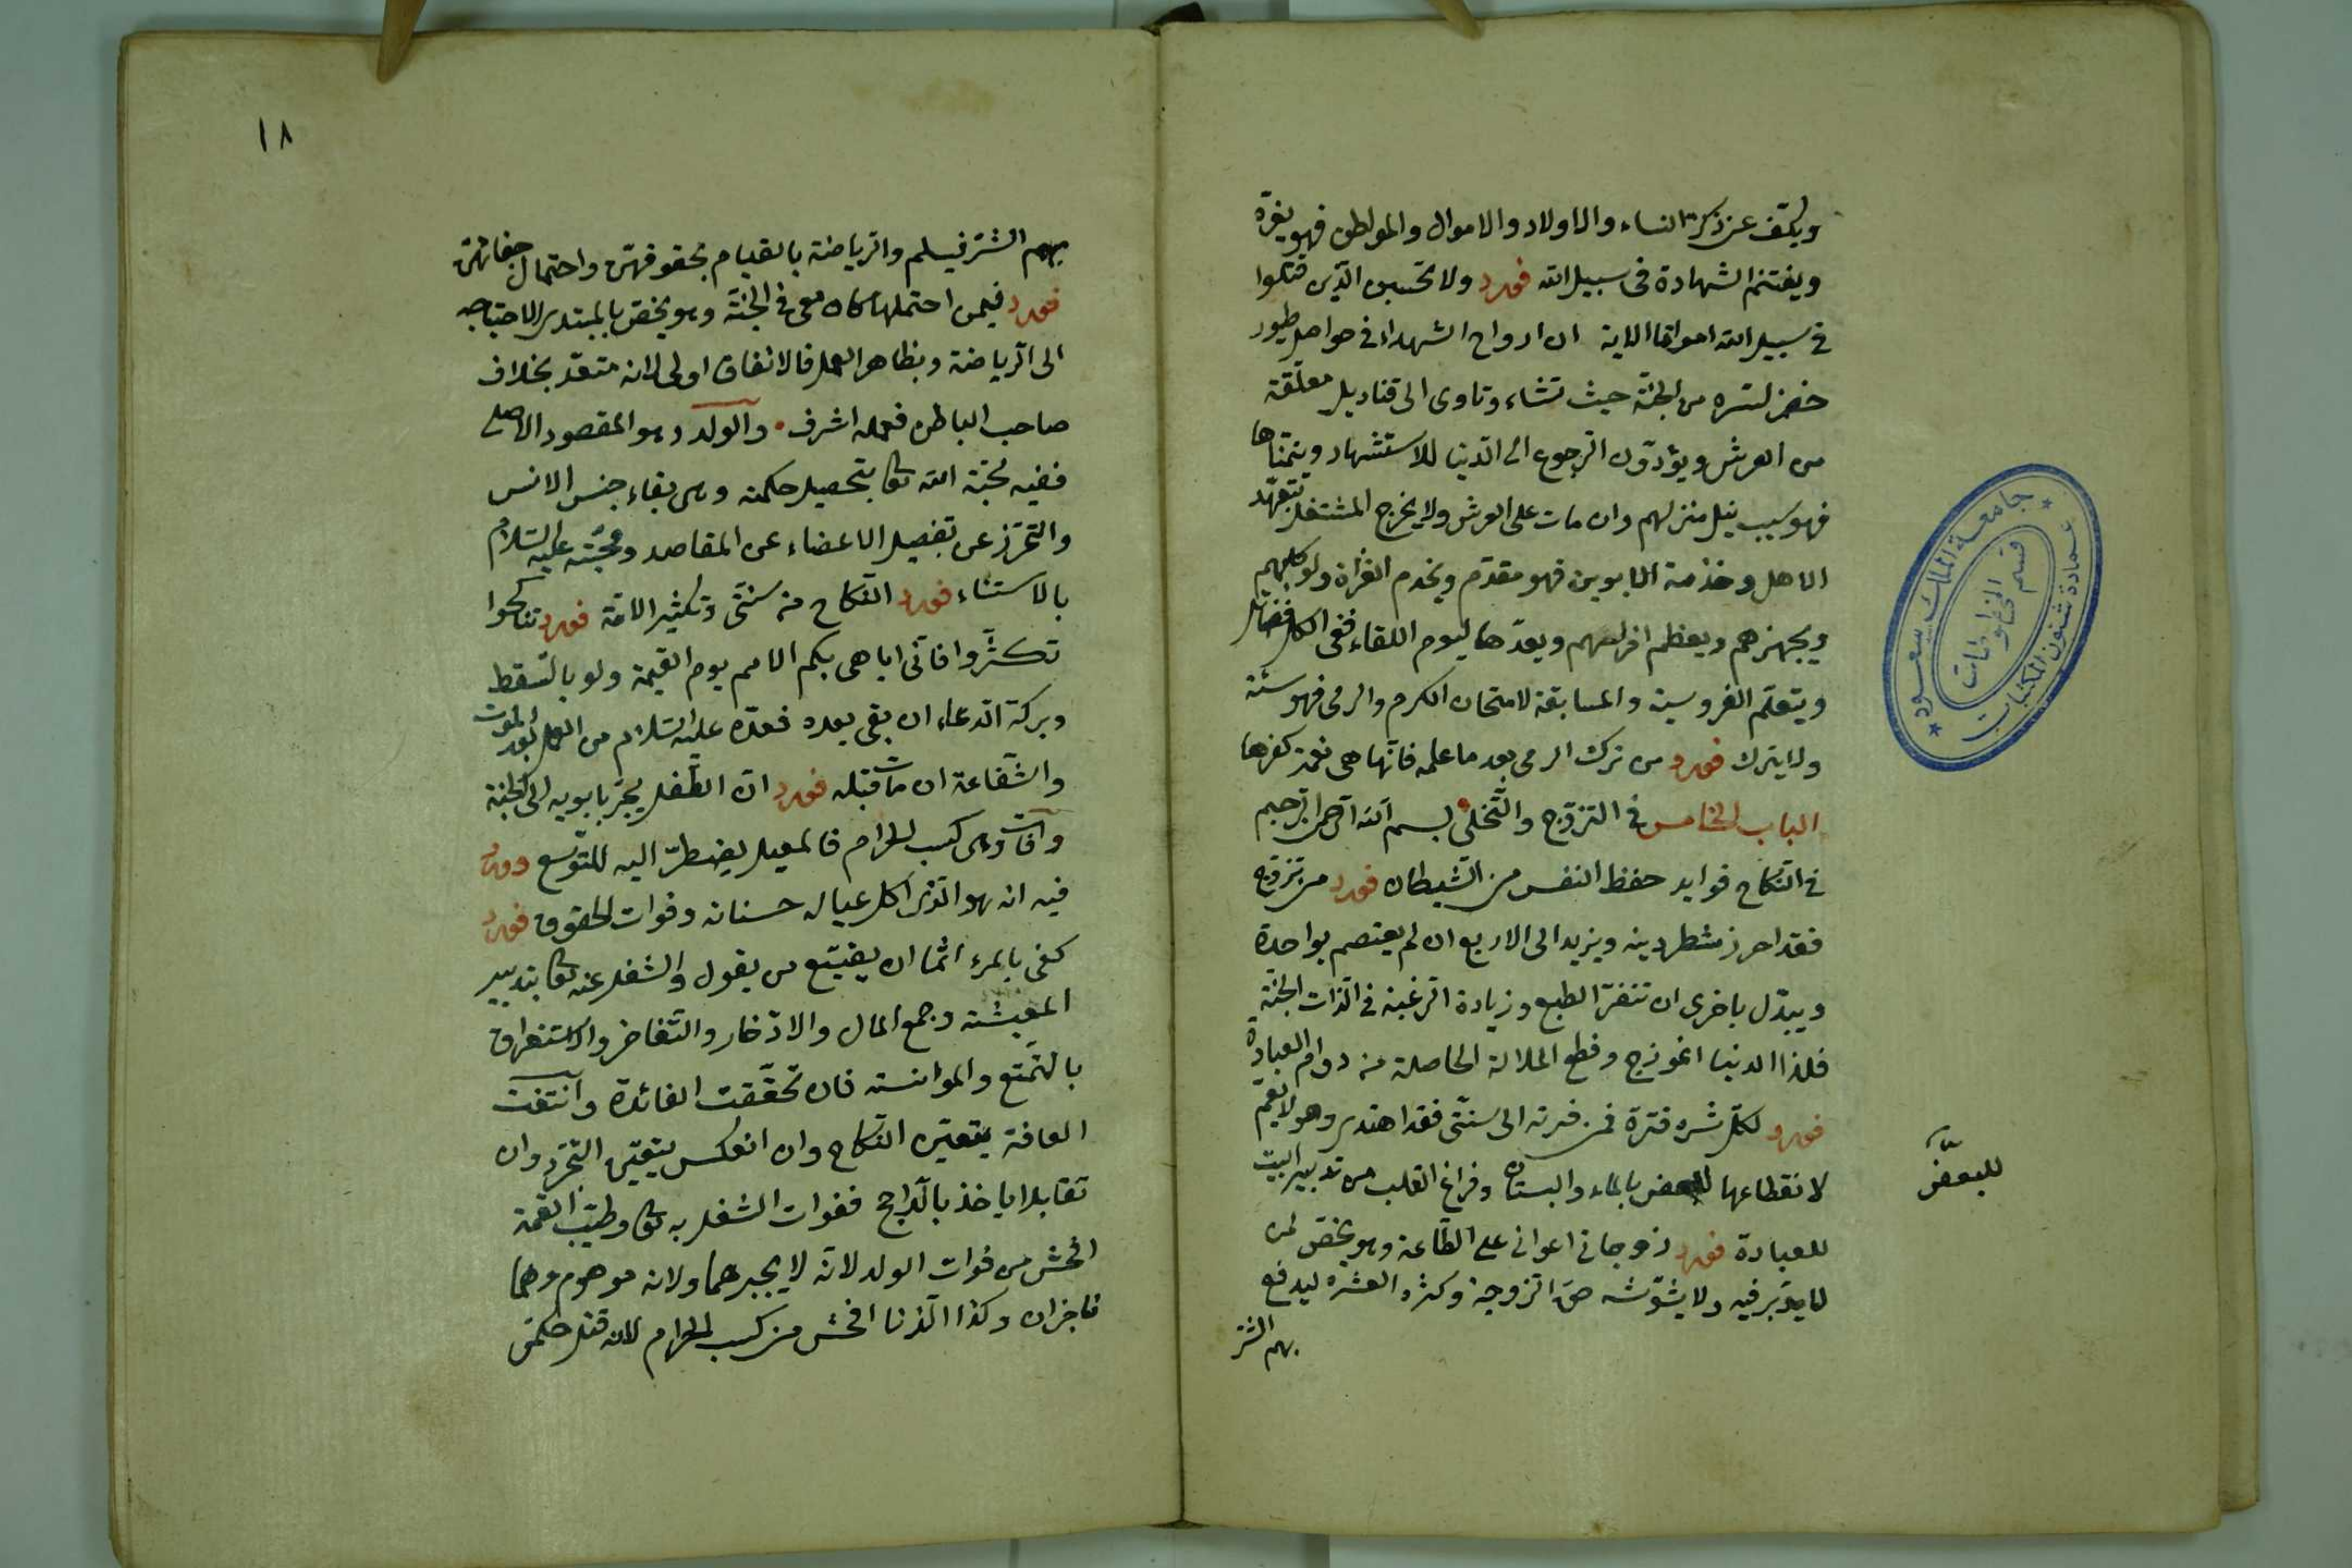 ويكف عن ذكر النساء والاولاد والاموال والمواطن فهو يغرّه
ويغتنم الشهادة فى سبيل الله فورد ولا تحسبن الذين قتلوا
فى سبيل الله امواتا الاية ان ارواح الشهداء فى حواصل طيور
خضر تسرح من الجنّة حيث تشاء وتاوى الى قناديل معلّقة
من العرش ويودّون الرجوع الى الدنيا للاستشهاد ويتمنّاها
فهو سبب نيل منزلهم وان مات على العرش ولا يخرج المشتغل بتعهّد
الاهل وخدمة الابوين فهو مقدّم ويخدم الغزاة ولو كلبهم
ويجهزهم ويعظم افراسهم ويعدّها ليوم اللقاء ففى الكل فضائل
ويتعلّم الفروسية والمسابقة لامتحان الكرم والرمى فهو سنّة
ولا يترك فورد من ترك الرمى بعد ما علمه فانّها هى نعمة كفرها
الباب الخامس فى التزوّج والتّخلى بسم الله الرحمن الرحيم
فى النكاح فوايد حفظ النفس من الشيطان فورد من تزوّج
فقد احرز شطر دينه ويزيد الى الاربع ان لم يعتصم بواحدة
ويبدّل باخرى ان تنفرّ الطبع وزيادة الرغبة فى لذات الجنّة
فلذا الدنيا انموذج وقطع الملالة الحاصلة من دوام العبادة
فورد لكلّ شره فترة فمن فترته الى سنّتى فقد اهتدى وهو لا يعمّ
لانقطاعها للبعض بالماء والبستان وفراغ القلب من تدبير البيت
للبعض
للعبادة فورد زوجاتى اعوانى على الطّاعة وهو يختصّ لمن
لا يدبّر فيه ولا يشوّشه حقّ الزوجة وكثرة العشرة ليدفع
بهم الشر
١٨
بهم الشرّ فيسلم والرياضة بالقيام بحقوقهنّ واحتمال جفائهنّ
فورد فيمن احتملها كان معى فى الجنّة وهو يختصّ بالمبتدى لاحتياجه
الى الرياضة وبظاهر العمل فالانفاق اولى لانه متعدّ بخلاف
صاحب الباطن فعمله اشرف والولد وهو المقصود الاصلى
ففيه محبّة الله تعا بتحصيل حكمته وهى بقاء جنس الانس
والتحرّز عن تفصيل الاعضاء عن المقاصد ومحبّته عليه السّلام
بالاستناء فورد النّكاح من سنّتى وتكثير الامّة فورد تناكحوا
تكثّروا فانّى اباهى بكم الامم يوم القيمة ولو بالسّقط
وبركة الدعاء ان بقى بعده فعدّه عليه السّلام من العمل بعد الموت
والشّفاعة ان مات قبله فورد انّ الطّفل يجرّ بابويه الى الجنّة
وآفات وهى كسب الحرام فالمعيل يضطرّ اليه للتوسّع وورد
فيه انه هو الذى اكل عياله حسناته وفوات الحقوق فورد
كفى بالمرء اثما ان يضيّع من يعول والشغل عنه تعا بتدبير
المعيشة وجمع المال والادّخار والتّفاخر والاستغراق
بالتّمتع والموانسة فان تحقّقت الفائدة وانتفت
العافة يتعيّن النّكاح وان انعكس يتعيّن التجرّد وان
تقابلا ياخذ بالراجح ففوات الشغل به تعا وطيب اللقمة
افحش من فوات الولد لانّه لا يجبرهما ولانه موهوم وهما
ناجزان وكذا الزنا افحش من كسب الحرام لانه قتل حكمى
جامعة الملك سعود
عمادة شئون المكتبات
قسم المخطوطات